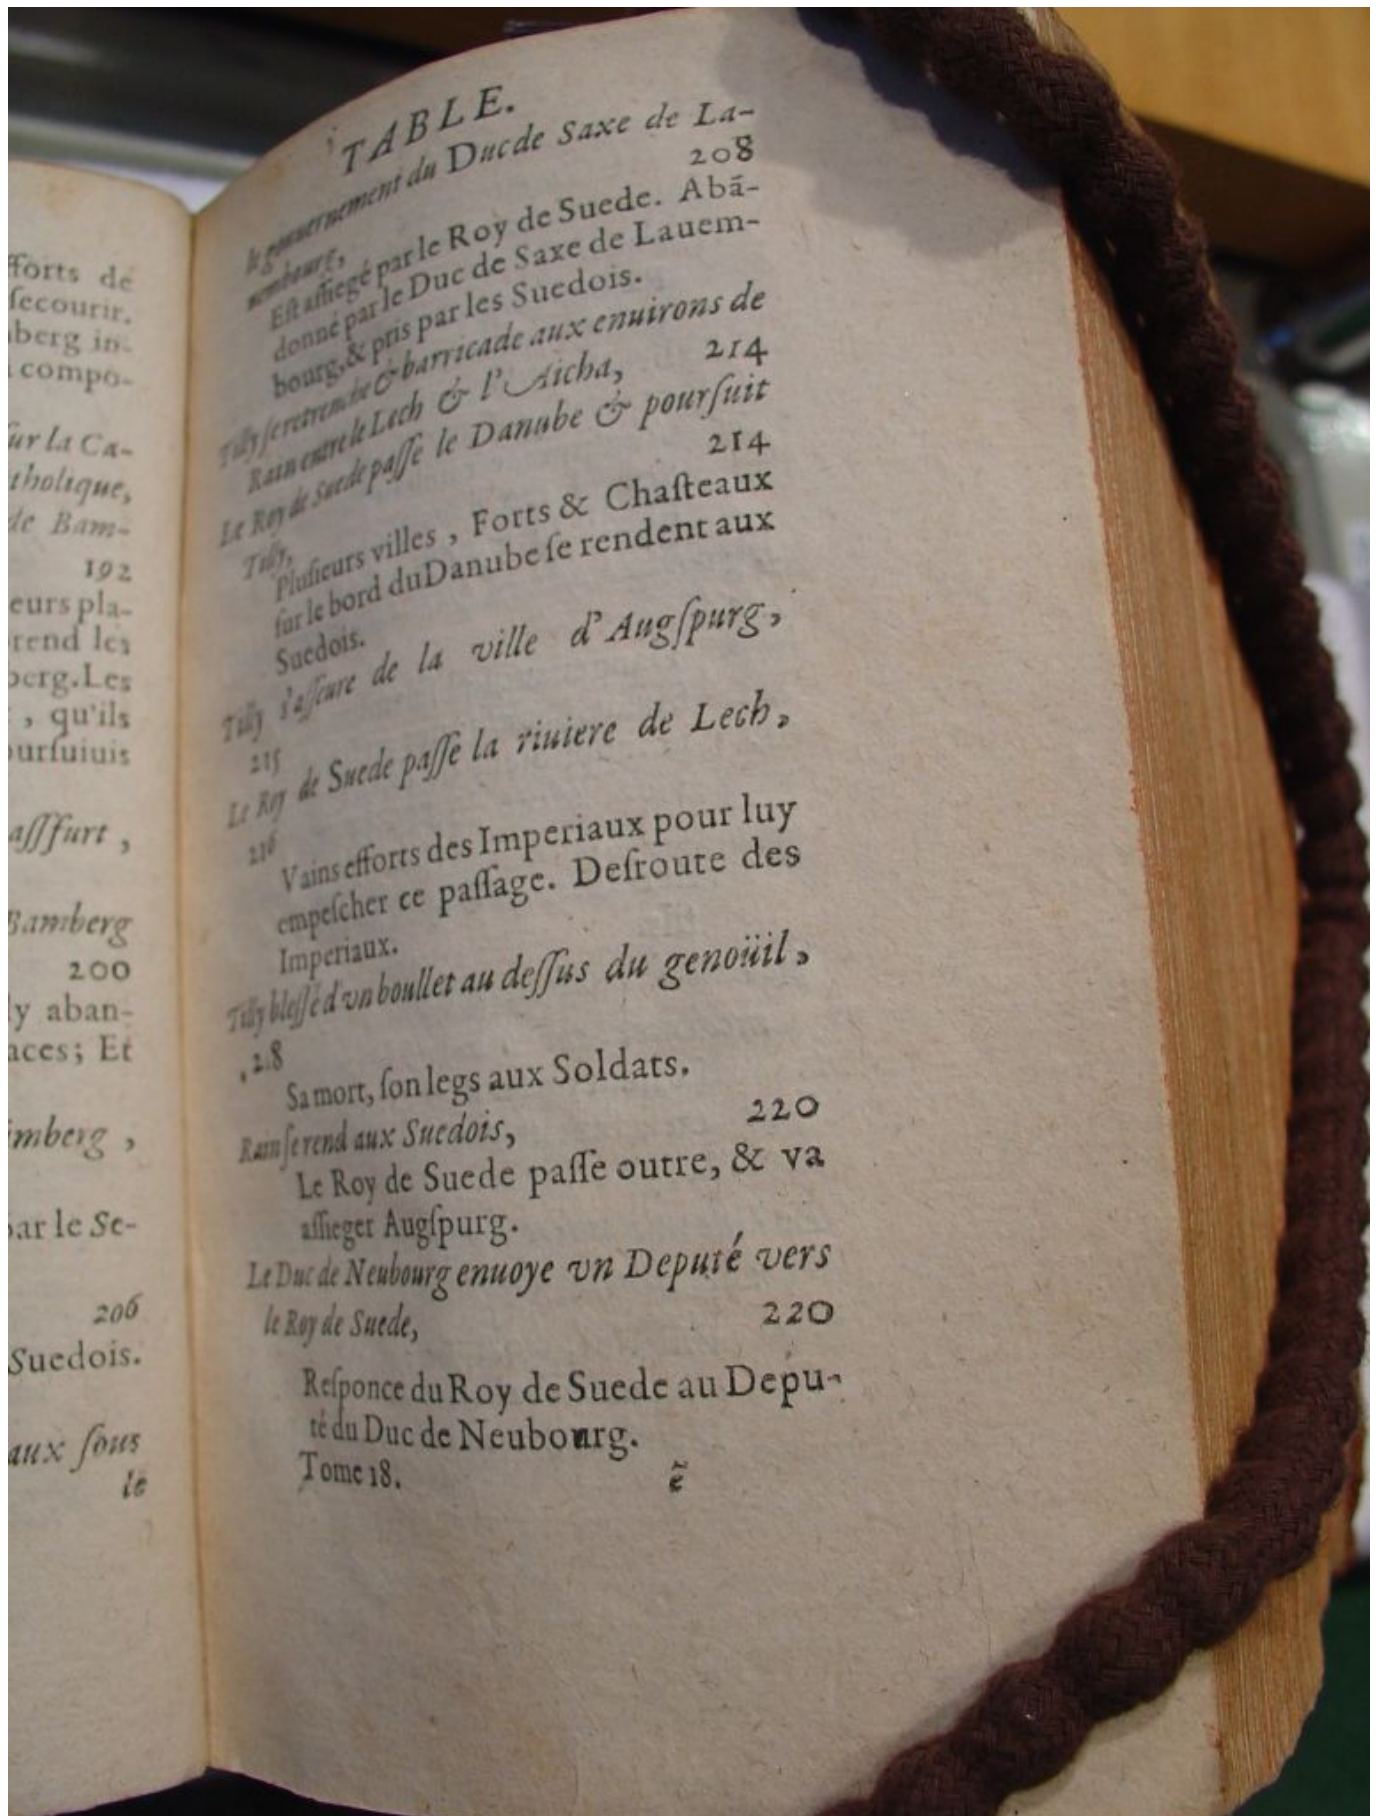 fforts de
ſecourir.
berg in-
compo-
ſur la Ca-
tholique,
de Bam-
192
eurs pla-
rend les
berg. Les
, qu'ils
ourſuiuis
aſſfurt ,
Bamberg
200
y aban-
aces; Et
mberg ,
par le Se-
206
Suedois.
aux ſous
le
TABLE.
le gouuernement du Duc de Saxe de La-
uembourg, 208
Eſt aſſiegé par le Roy de Suede. Abã-
donné par le Duc de Saxe de Lauem-
bourg, & pris par les Suedois.
Tilly ſe retranche & barricade aux enuirons de
Rain entre le Lech & l'Aicha, 214
Le Roy de Suede paſſe le Danube & pourſuit
Tilly, 214
Pluſieurs villes , Forts & Chaſteaux
ſur le bord du Danube ſe rendent aux
Suedois.
Tilly s'aſſeure de la ville d'Augſpurg,
215
Le Roy de Suede paſſe la riuiere de Lech,
216
Vains efforts des Imperiaux pour luy
empeſcher ce paſſage. Deſroute des
Imperiaux.
Tilly bleſſé d'vn boullet au deſſus du genoüil,
2.8
Sa mort, ſon legs aux Soldats.
Rain ſe rend aux Suedois, 220
Le Roy de Suede paſſe outre, & va
aſſieger Augſpurg.
Le Duc de Neubourg enuoye vn Deputé vers
le Roy de Suede, 220
Reſponce du Roy de Suede au Depu-
té du Duc de Neubourg.
Tome 18. ẽ